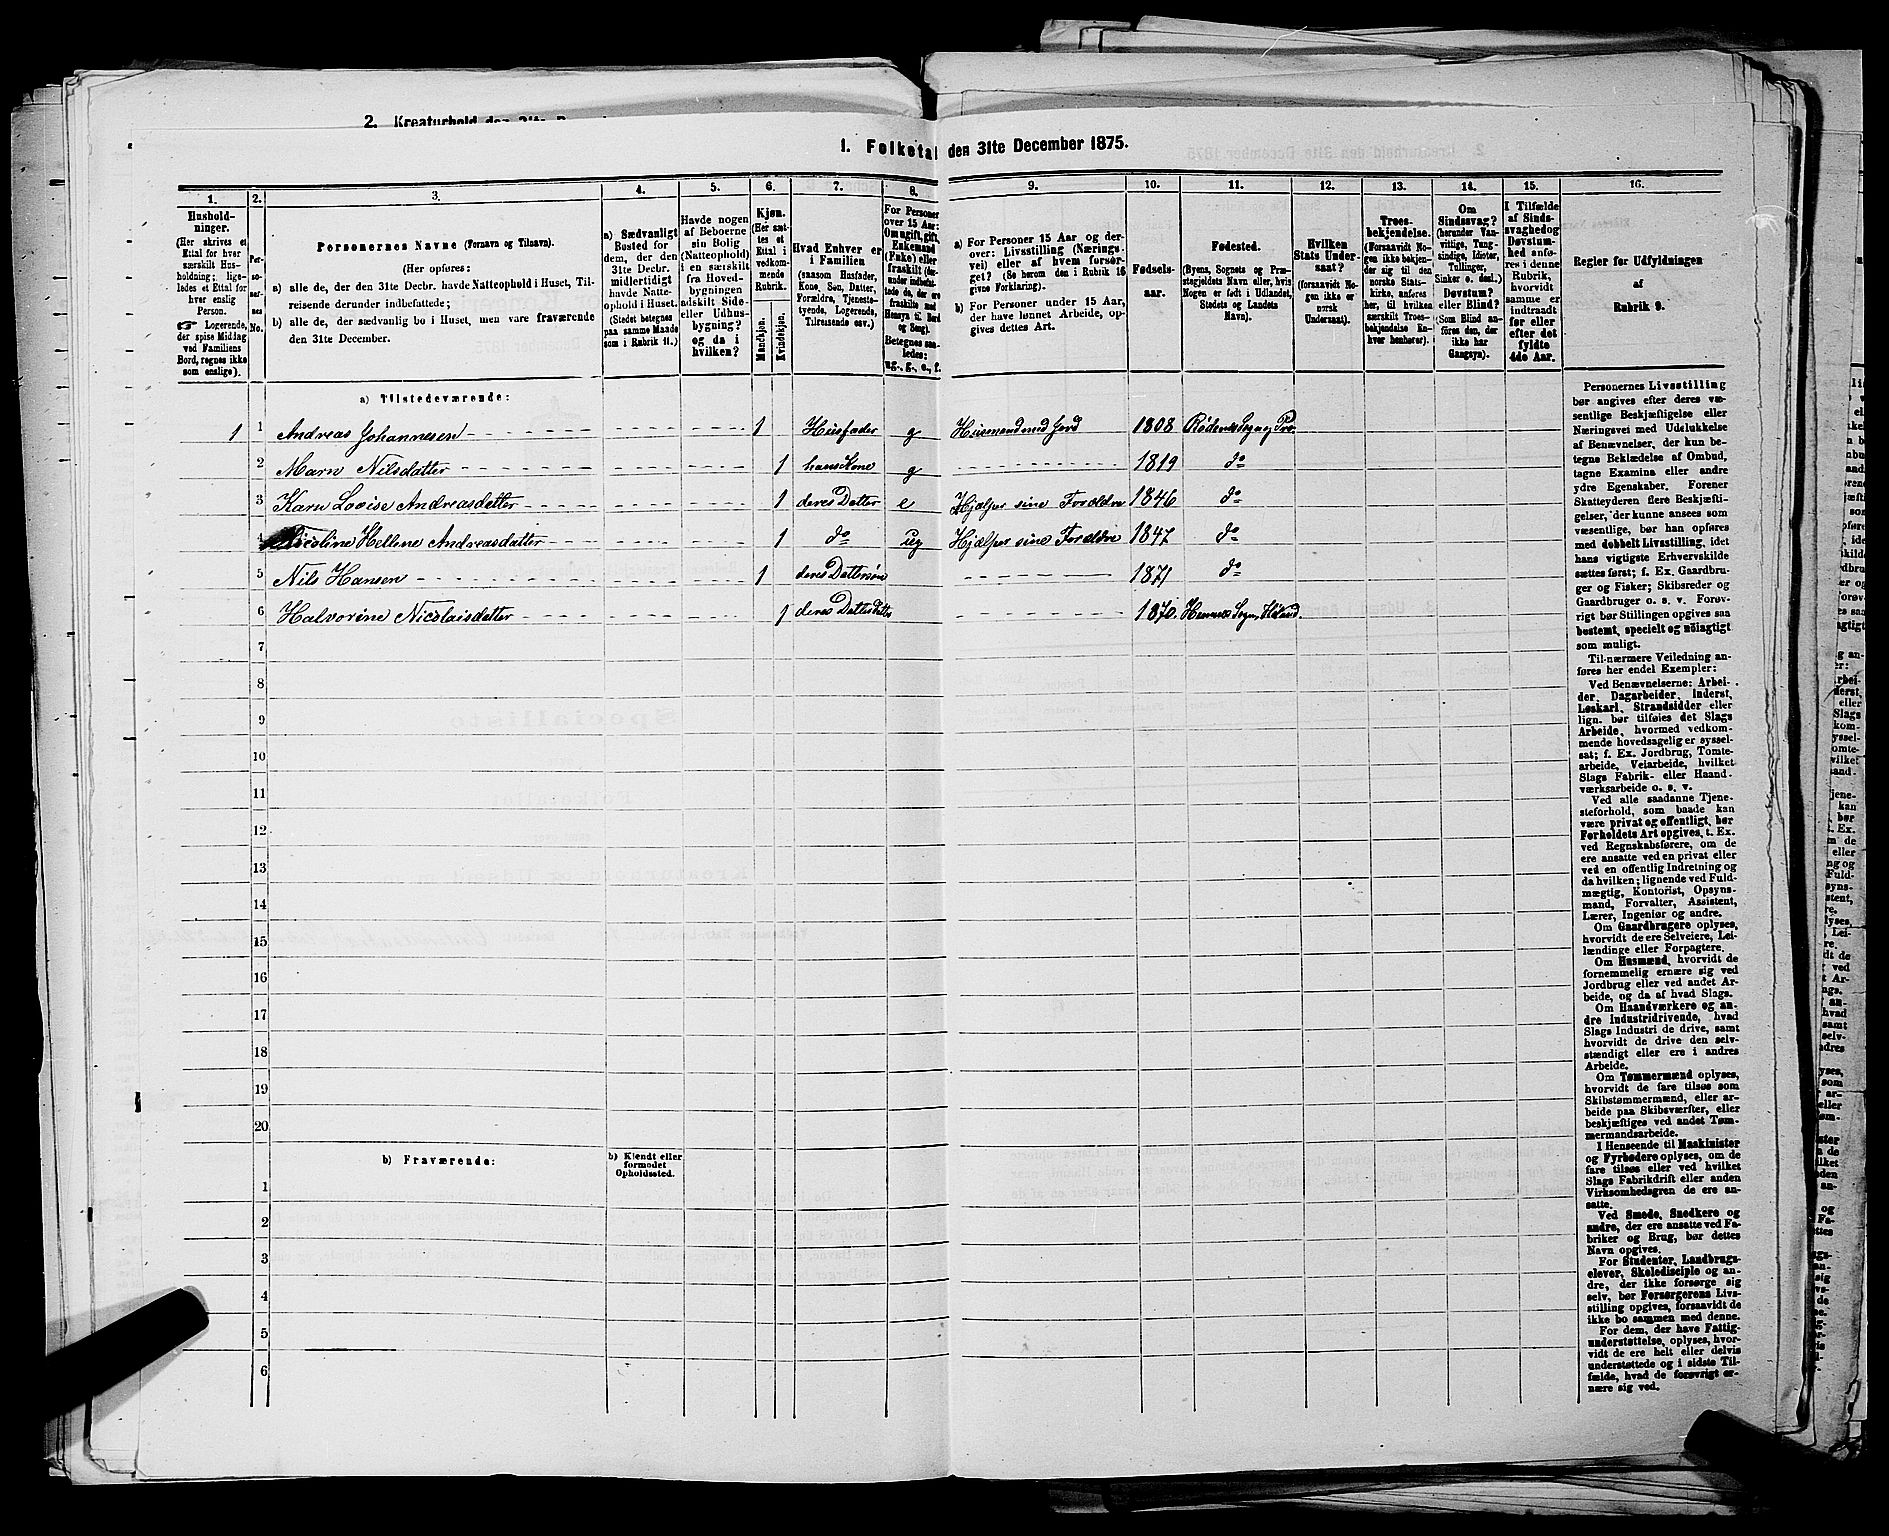 2. Kreaturhold den 31te
1. Folketal den 31te December 1875.
1.
2.
3.
4.
5.
6.
7.
8.
9.
10.
11.
12.
13.
14.
15.
16.
Hushold-
ninger.
(Her skrives et
Ettal for hver
særskilt Hus-
holdning; lige-
ledes et Ettal for
hver enslig
Person.
☞ Logerende,
der spise Middag
ved Familiens
Bord, regnes ikke
som enslige).
Per-
so-
ner-
nes
No.
Personernes Navne (Fornavn og Tilnavn).
(Her opføres:
a) alle de, der den 31te Decbr. havde Natteophold i Huset, Til-
reisende derunder indbefattede;
b) alle de, der sædvanlig bo i Huset, men vare fraværende
den 31te December.
a) Sædvanligt
Bosted for
dem, der den
31te Decbr.
midlertidigt
havde Natte-
ophold i Huset.
(Stedet betegnes
paa samme Maade
som i Rubrik 11.)
Havde nogen
af Beboerne
sin Bolig
(Natteophold)
i en særskilt
fra Hoved-
bygningen
adskilt Side-
eller Udhus-
bygning?
og da i
hvilken?
Kjøn.
(Her sæt-
tes et
Ettal i
vedkom-
mende
Rubrik.
Mandkjøn.
Kvindekjøn.
Hvad Enhver er
i Familien
(saasom Husfader,
Kone, Søn, Datter,
Forældre, Tjeneste-
tyende, Logerende,
Tilreisende osv.)
For Personer
over 15 Aar:
Om ugift, gift,
Enkemand
(Enke) eller
fraskilt (der-
under indbefat-
tede de, der ere
fraskilte med
Hensyn til Bord
og Seng).
Betegnes saa-
ledes:
ug., g., e., f.
a) For Personer 15 Aar og der-
over: Livsstilling (Nærings-
vei) eller af hvem forsør-
get? (Se herom den i Rubrik 16
givne Forklaring).
b) For Personer under 15 Aar,
der have lønnet Arbeide, op-
gives dettes Art.
Fødsels-
aar.
Fødested.
(Byens, Sognets og Præ-
stegjeldets Navn eller, hvis
Nogen er født i Udlandet,
Stedets og Landets
Navn).
Hvilken
Stats Under-
saat?
(forsaavidt No-
gen ikke er
norsk
Undersaat).
Troes-
bekjendelse.
(Forsaavidt No-
gen ikke bekjen-
der sig til den
norske Stats-
kirke, anføres
her, til hvilken
særskilt Troes-
bekjendelse En-
hver henhører).
Om
Sindssvag?
(herunder Van-
vittige, Tung-
sindige, Idioter,
Tullinger,
Sinker o. desl.)
Døvstum?
eller Blind?
(Som Blind an-
føres den, der
ikke har
Gangsyn).
I Tilfælde
af Sinds-
svaghed og
Døvstum-
hed anfø-
res i denne
Rubrik,
hvorvidt
samme er
indtraadt
før eller
efter det
fyldte
4de Aar.
Regler før Udfyldningen
af
Rubrik 9.
a) Tilstedeværende:
1 1 Andreas Johannesen 1 Husfader g Husmand med Jord 1808 Rødenes Sogn og Præ.
2 Marn Nilsdatter 1 hans Kone g 1819 do
3 Karn Lovise Andreasdatter 1 deres Datter e Hjælper sine Forældre 1846 do
4 Nicoline Hellene Andreasdatter 1 do ug Hjælper sine Forældre 1847 do
5 Nils Hansen 1 deres Dattersøn 1871 do
6 Halvorine Nicolaisdatter 1 deres Dattesdatter 1870. Hemnes Sogn, Høland.
7
8
9
10
11
12
13
14
15
16
17
18
19
20
b) Fraværende:
b) Kjendt eller
formodet
Opholdssted.
1
2
3
4
5
6
Personernes Livsstilling
bør angives efter deres væ-
sentlige Beskjæftigelse eller
Næringsvei med Udelukkelse
af Benævnelser, der kun be-
tegne Beklædelse af Ombud,
tagne Examina eller andre
ydre Egenskaber. Forener
Skatteyderen flere Beskjæfti-
gelser, der kunne ansees som
væsentlige, bør han opføres
med dobbelt Livsstilling, idet
hans vigtigste Erhvervskilde
sættes først; f. Ex. Gaardbru-
ger og Fisker; Skibsreder og
Gaardbruger o. s. v. Forøv-
rigt bør Stillingen opgives saa
bestemt, specielt og nöiagtigt
som muligt.
Til nærmere Veiledning an-
føres her endel Exempler:
Ved Benævnelserne: Arbei-
der, Dagarbeider, Inderst,
Løskarl, Strandsidder eller
lign. bør tilføies det Slags
Arbeide, hvormed vedkom-
mende hovedsagelig er syssel-
sat; f. Ex. Jordbrug, Tomte-
arbeide, Veiarbeide, hvilket
Slags Fabrik- eller Haand-
værksarbeide o. s. v.
Ved alle saadanne Tjene-
steforhold, som baade kan
være privat og offentligt, bør
Forholdets Art opgives, t. Ex.
ved Regnskabsførere, om de
ere ansatte ved en privat eller
ved en offentlig Indretning og
da hvilken; lignende ved Fuld-
mægtig, Kontorist, Opsyns-
mand, Forvalter, Assistent,
Lærer, Ingeniør og andre.
Om Gaardbrugere oplyses,
hvorvidt de ere Selveiere, Lei-
lændinge eller Forpagtere.
Om Husmænd, hvorvidt de
fornemmelig ernære sig ved
Jordbrug eller ved andet Ar-
beide, og da af hvad Slags.
Om Haandværkere og an-
dre Industridrivende, hvad
Slags Industri de drive, samt
hvorvidt de drive den selv-
stændigt eller ere i andres
Arbeide.
Om Tømmermænd oplyses,
hvorvidt de fare tilsøs som
Skibstømmermænd, eller ar-
beide paa Skibsværfter, eller
beskjæftiges ved andet Tøm-
mermandsarbeide.
I Henseende til Maskinister
og Fyrbødere oplyses, om de
fare tilsøs eller ved hvilket
Slags Fabrikdrift eller anden
Virksomhedsgren de ere an-
satte.
Ved Smede, Snedkere og
andre, der ere ansatte ved Fa-
briker og Brug, bør dettes
Navn opgives.
For Studenter, Landbrugs-
elever, Skoledisciple og an-
dre, der ikke forsørge sig
selv, bør Forsørgerens Livs-
stilling opgives, forsaavidt de
ikke bo sammen med denne.
For dem, der have Fattig-
understøttelse, oplyses, hvor-
vidt de ere helt eller delvis
understøttede og i sidste Til-
fælde, hvad de forøvrigt er-
nære sig ved.